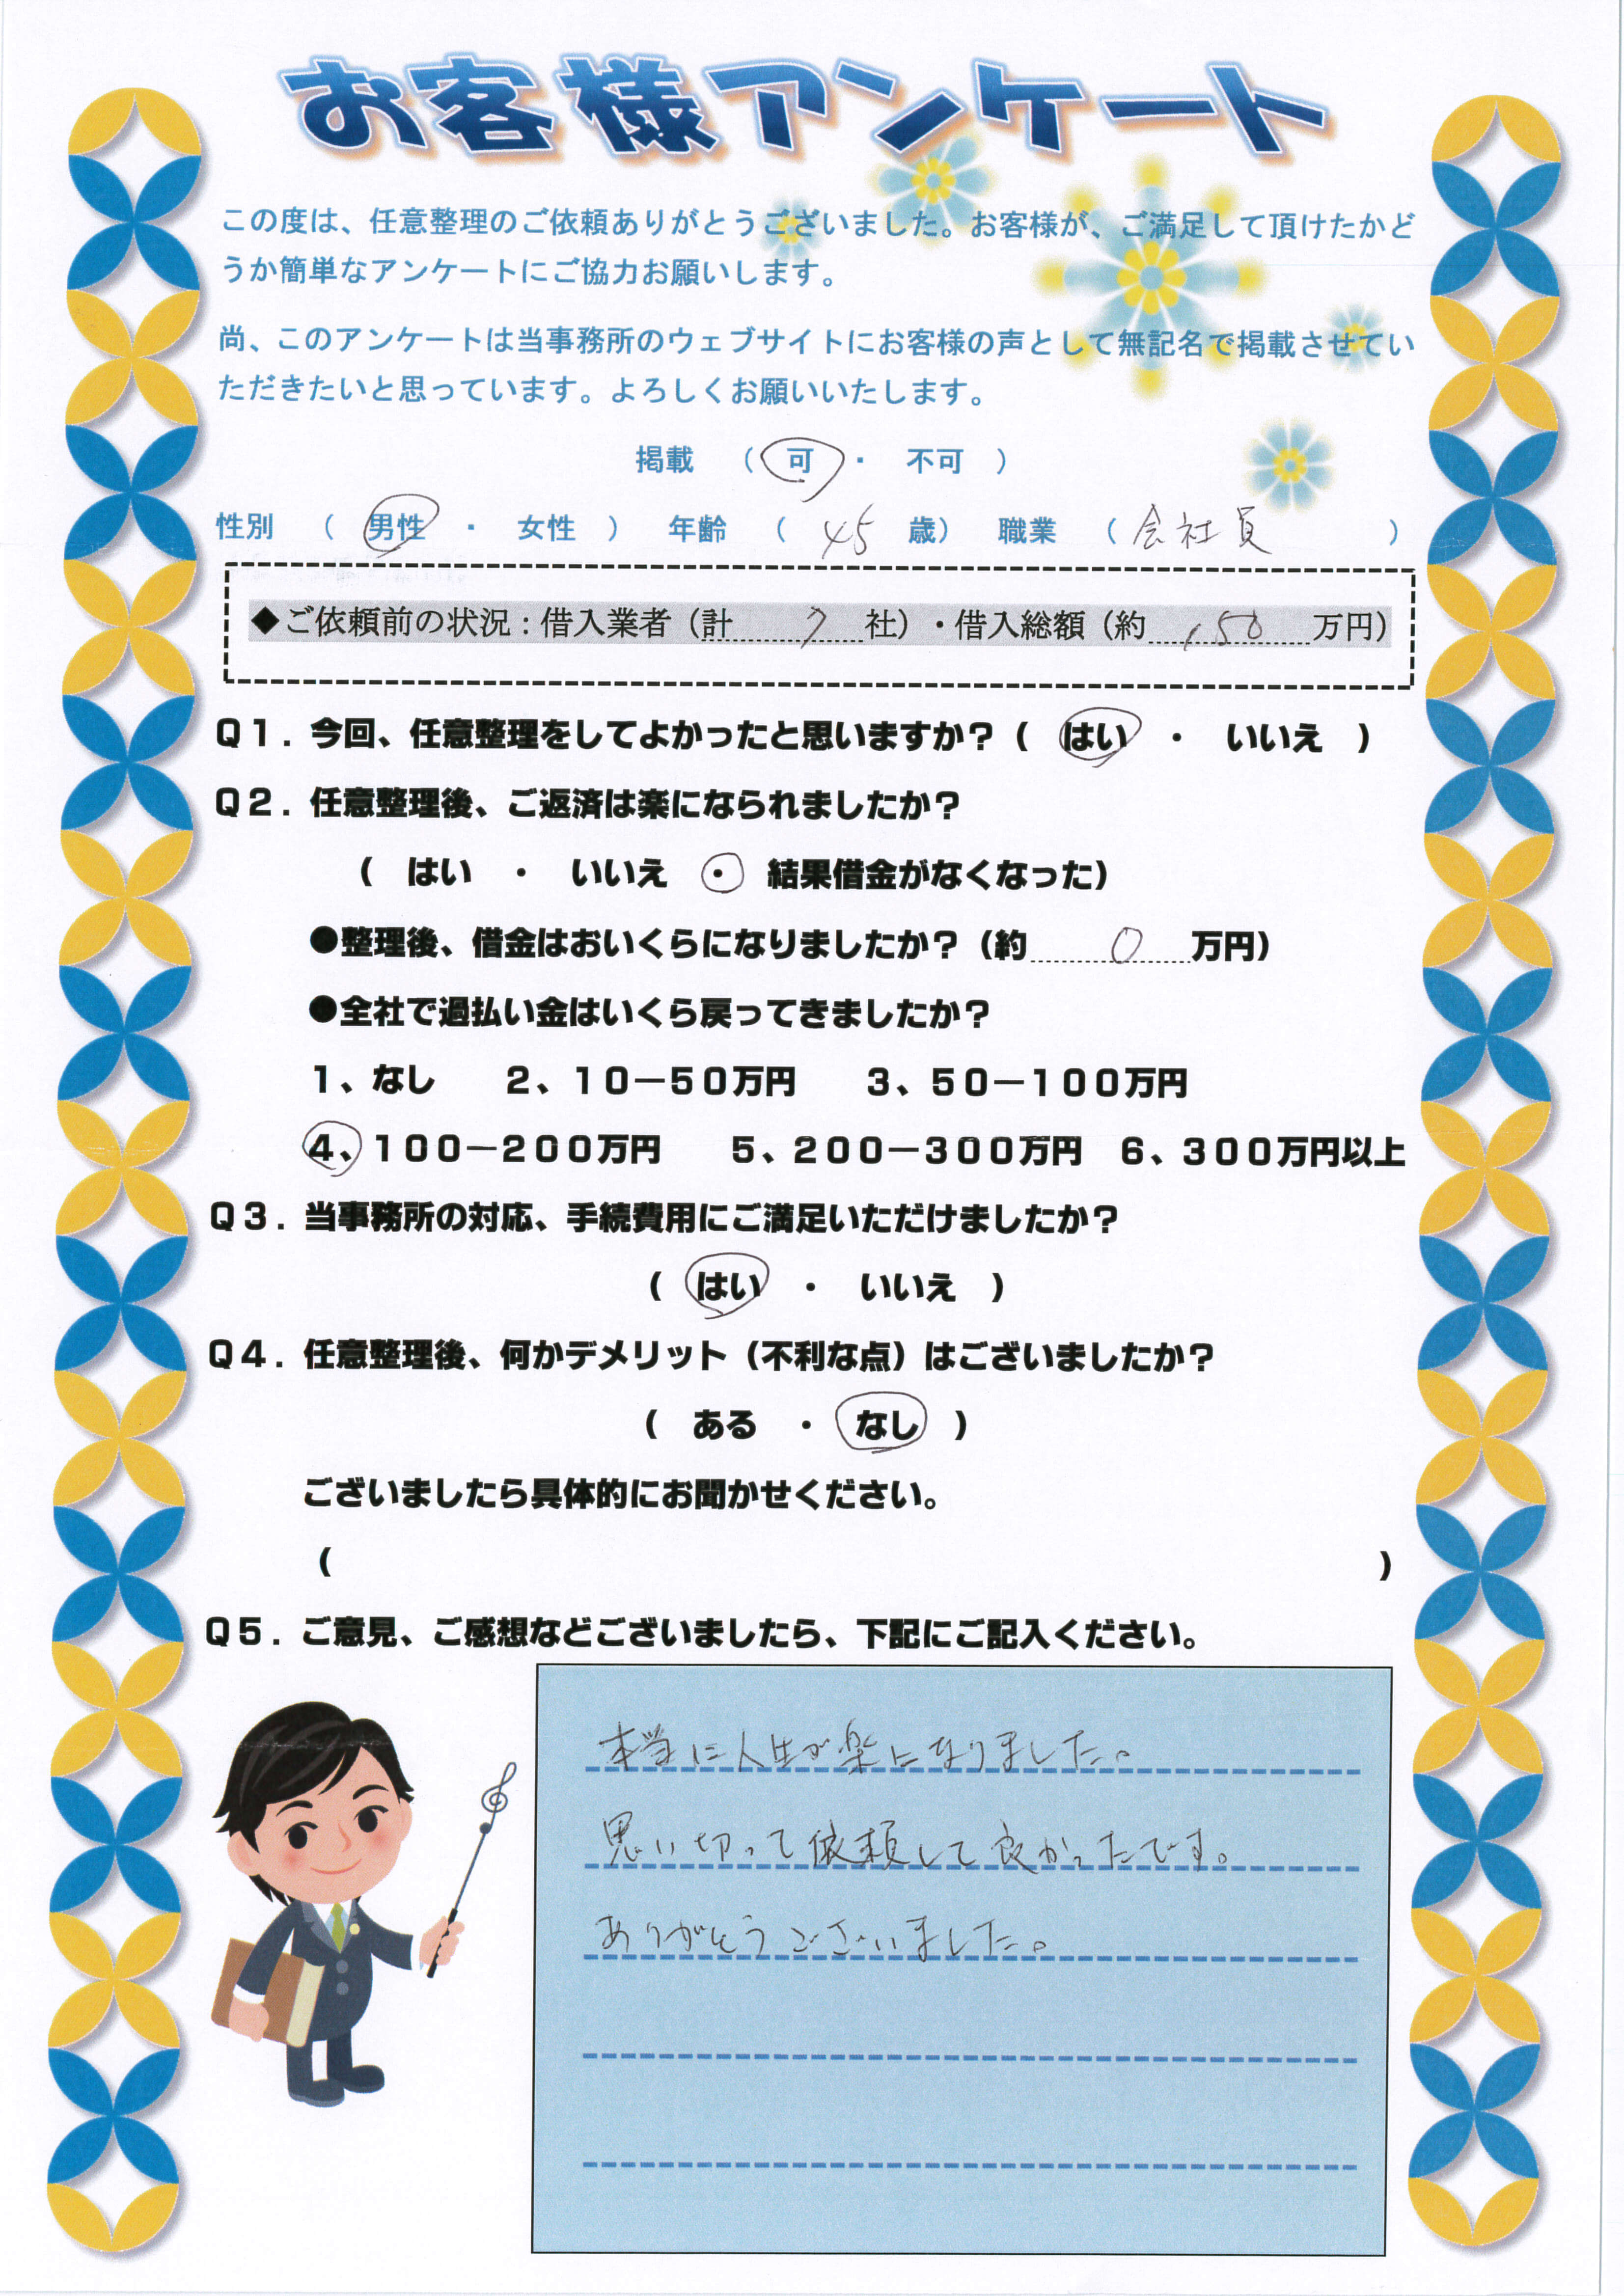 お客様アンケート
この度は、任意整理のご依頼ありがとうございました。お客様が、ご満足して頂けたかど
うか簡単なアンケートにご協力お願いします。
尚、このアンケートは当事務所のウェブサイトにお客様の声として無記名で掲載させてい
ただきたいと思っています。よろしくお願いいたします。
掲載 （ 可 ・ 不可 ）
性別 （ 男性 ・ 女性 ） 年齢 （ 45 歳） 職業 （ 会社員 ）
◆ご依頼前の状況：借入業者（計 7 社）・借入総額（約 150 万円）
Ｑ１．今回、任意整理をしてよかったと思いますか？（ はい ・ いいえ ）
Ｑ２．任意整理後、ご返済は楽になられましたか？
（ はい ・ いいえ ・ 結果借金がなくなった）
●整理後、借金はおいくらになりましたか？（約 0 万円）
●全社で過払い金はいくら戻ってきましたか？
１、なし ２、１０－５０万円 ３、５０－１００万円
４、１００－２００万円 ５、２００－３００万円 ６、３００万円以上
Ｑ３．当事務所の対応、手続費用にご満足いただけましたか？
（ はい ・ いいえ ）
Ｑ４．任意整理後、何かデメリット（不利な点）はございましたか？
（ ある ・ なし ）
ございましたら具体的にお聞かせください。
（ ）
Ｑ５．ご意見、ご感想などございましたら、下記にご記入ください。
本当に人生が楽になりました。
思い切って依頼して良かったです。
ありがとうございました。